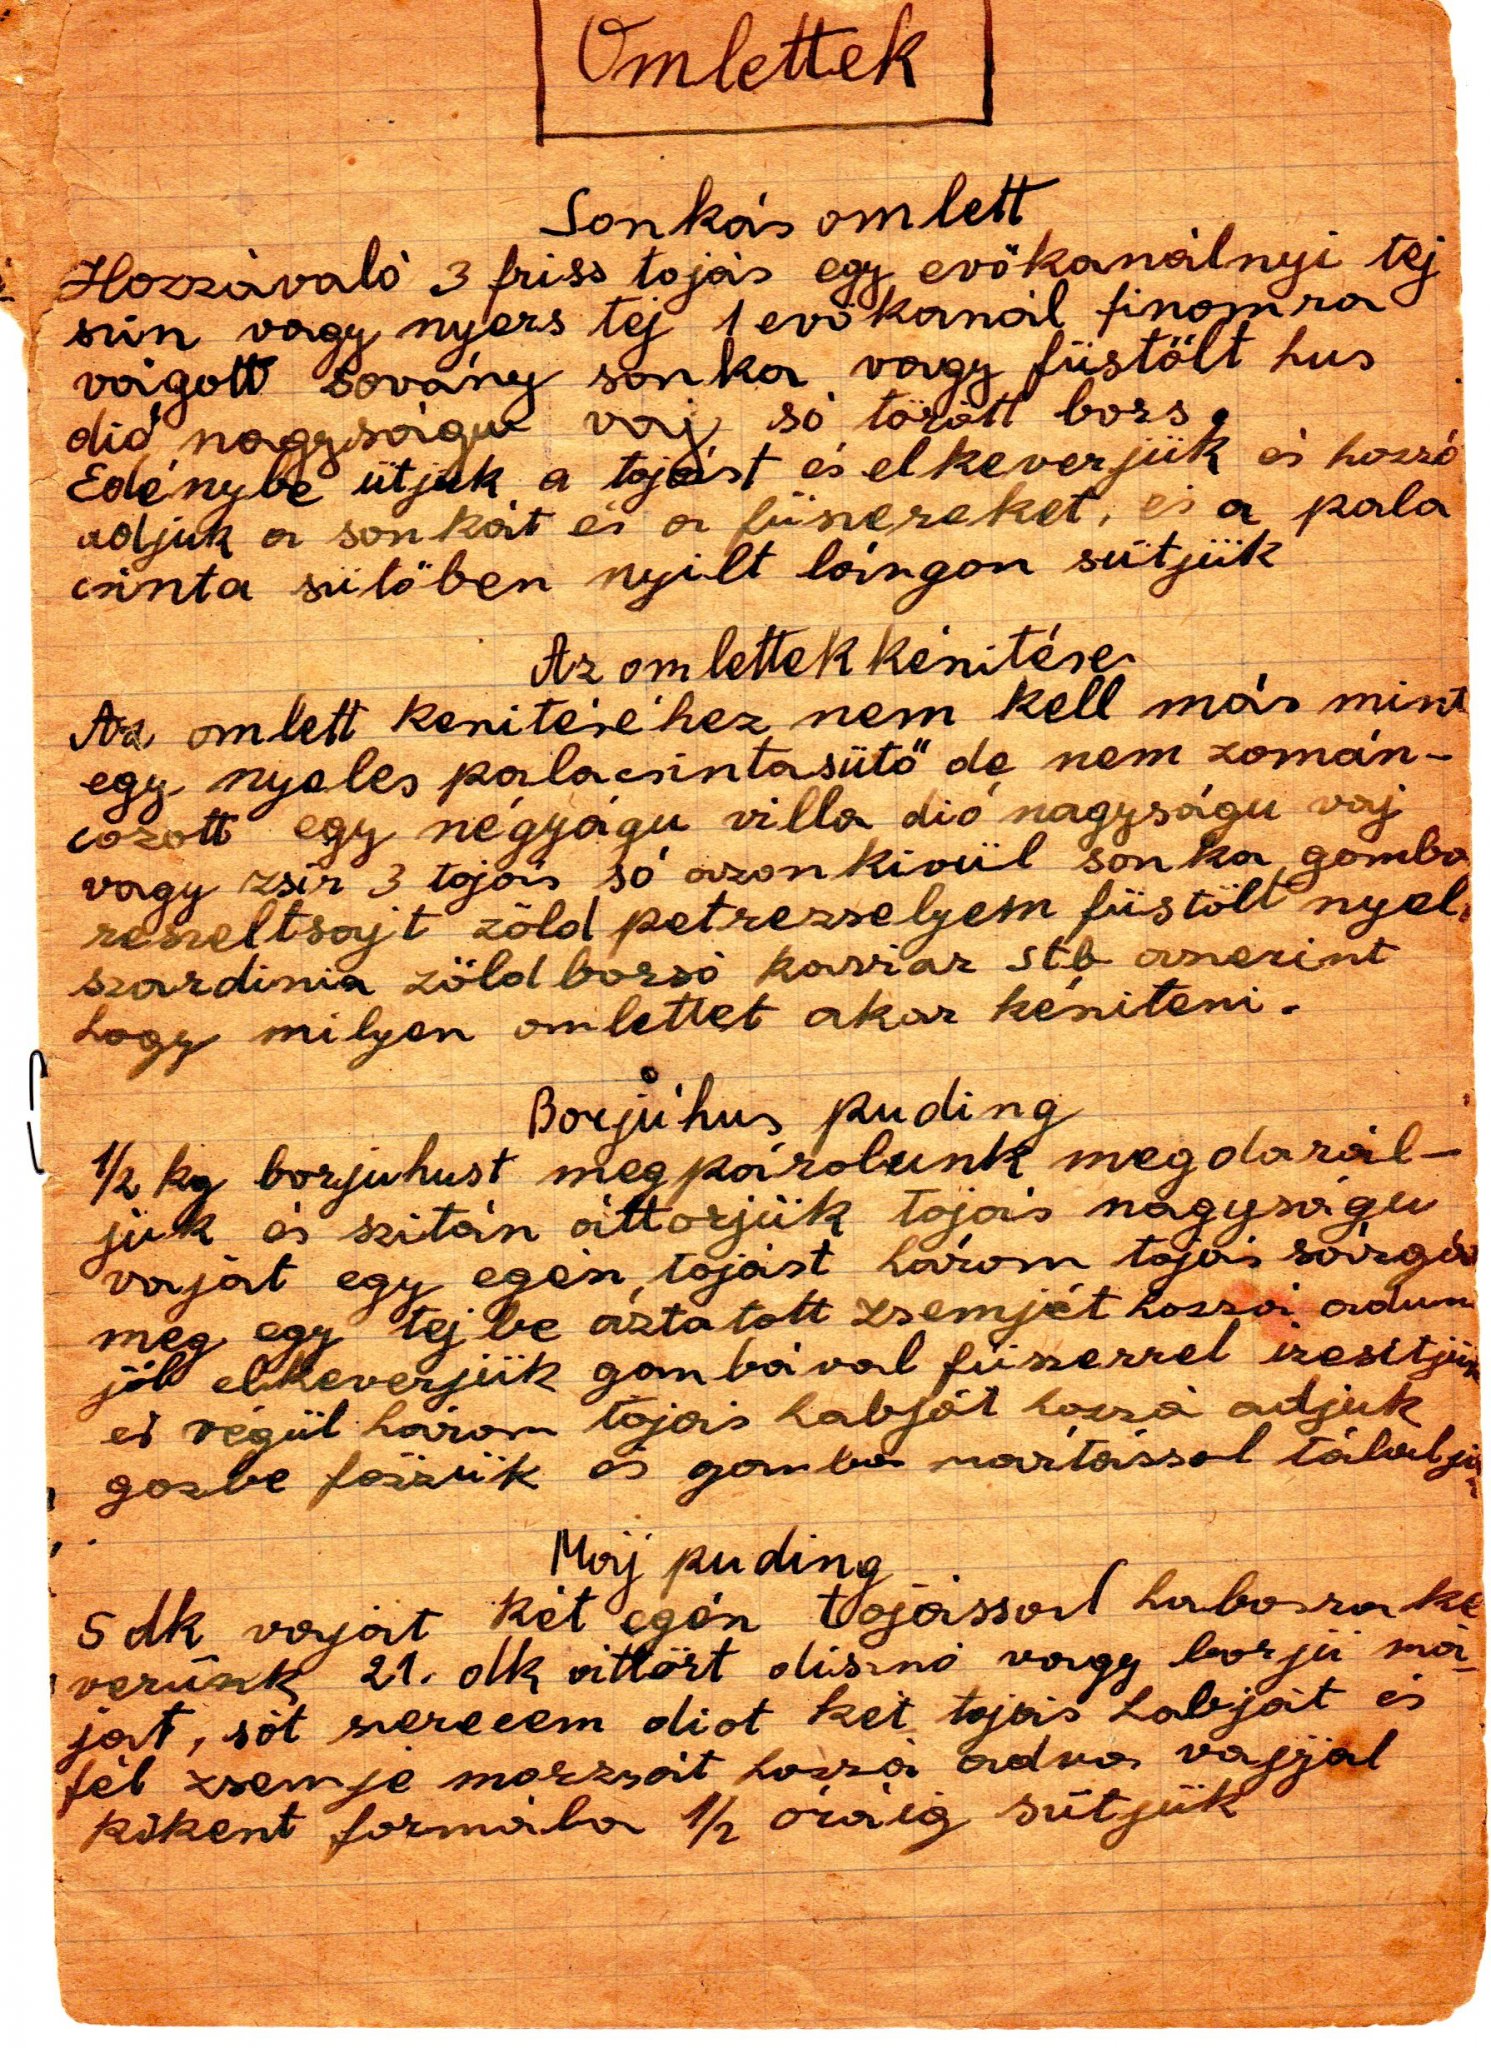 Omlettek
Sonkás omlett
Hozzávaló 3 friss tojás egy evőkanálnyi tej
szin vagy nyers tej 1 evőkanál finomra
vágott sovány sonka vagy füstölt hus
dió nagyságu vaj só törött bors.
Edénybe ütjük a tojást és elkeverjük és hozzá
adjuk a sonkát és a füszereket, és a pala
csinta sütőben nyilt lángon sütjük
Az omlettek készitése
Az omlett keszitéséhez nem kell más mint
egy nyeles palacsintasütő de nem zomán-
cozott egy négyágu villa dió nagyságu vaj
vagy zsir 3 tojás só azonkivül sonka gomba
reszeltsajt zöld petrezselyem füstölt nyel
szardinia zöldborsó kaviar stb aszerint
hogy milyen omlettet akar késziteni.
Borjúhus puding
1/2 kg borjuhust megpárolunk megdarál-
juk és szitán áttörjük tojás nagyságu
vaját egy egész tojást három tojás sárgá
meg egy tejbe áztatott zsemjét hozzá adun
jól elkeverjük gombával füszerrel izesitjük
es végül három tojás habját hozzá adjuk
gozbe fözzük és gomba mártással tálalju
Máj puding
5 dk vaját két egész tojással habosra ke
verünk 21. dk áttört disznó vagy borjú má-
ját, sót szerecsem diot két tojás habját és
fél zsemje morzsát hozzá adva vajjal
kikent formába 1/2 óráig sütjük